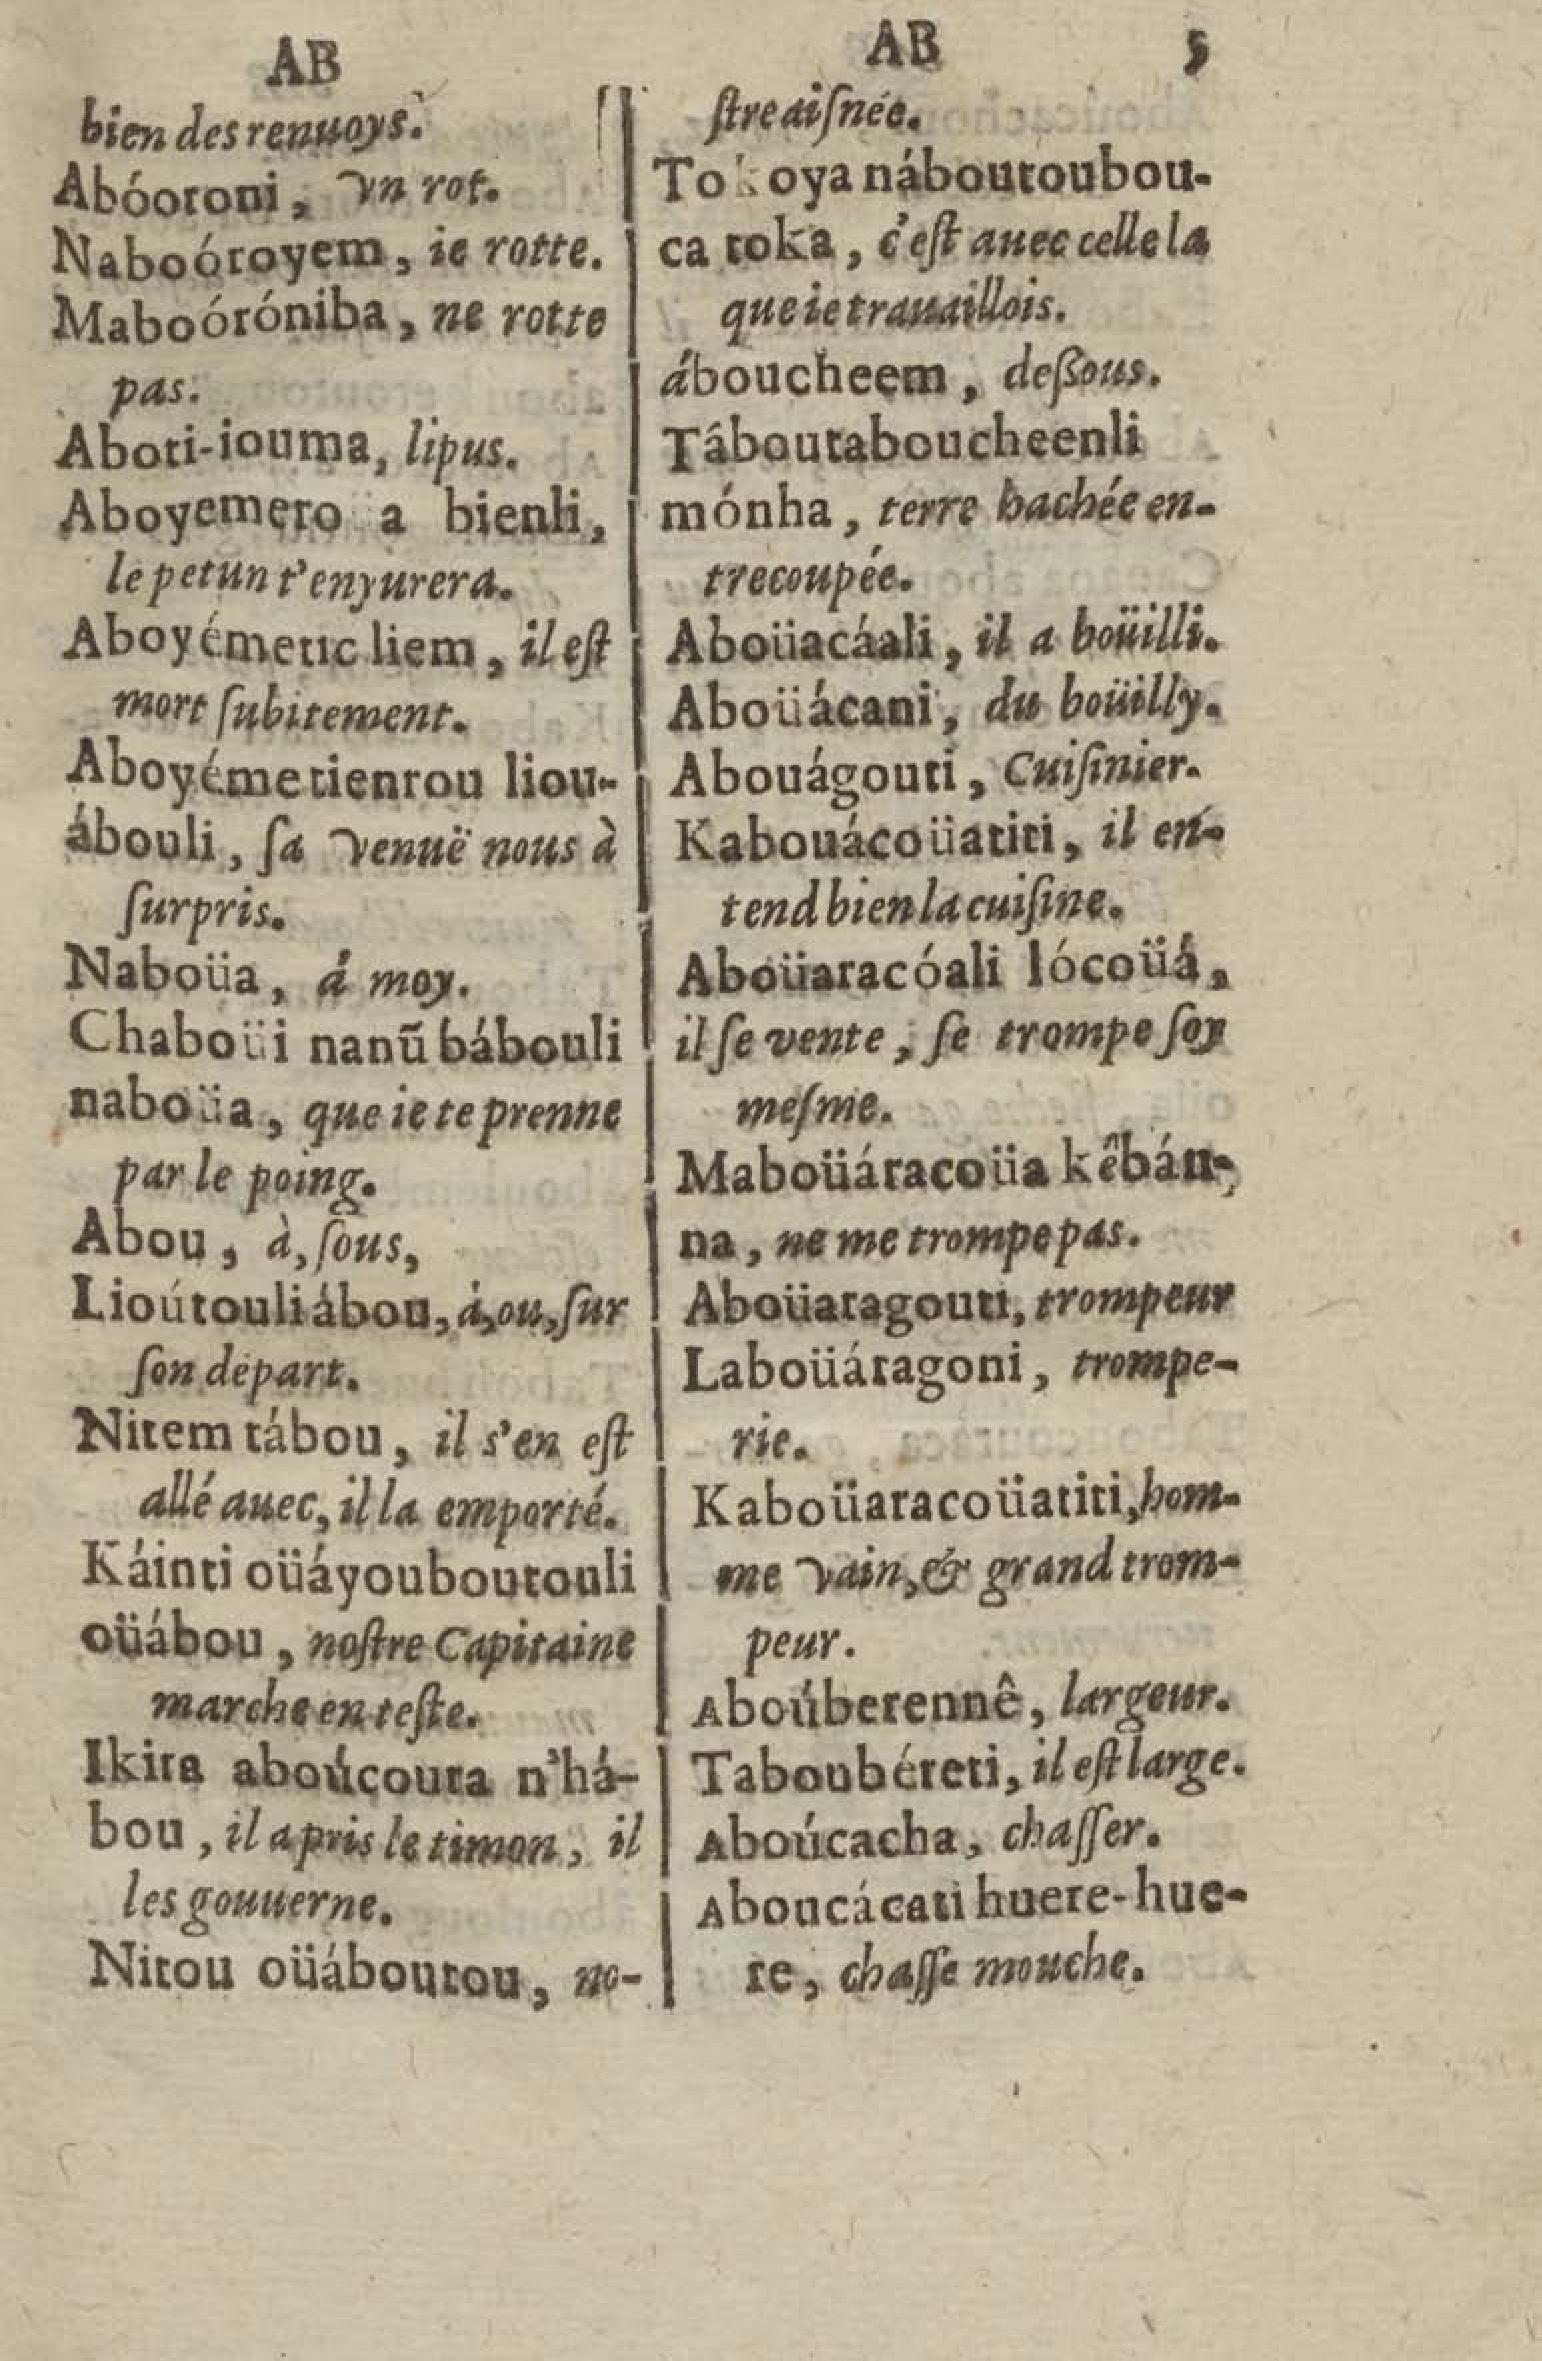 AB
bien des renuoys.
Abóoroni, vn rot.
Naboóroyem, ie rotte.
Maboóróniba, ne rotte
pas.
Aboti-iouma, lipus.
Aboyemero üa bienli,
le petun t'enyurera.
Aboyémetic liem, il eſt
mort ſubitement.
Aboyémetienrou liou-
ábouli, ſa venuë nous à
ſurpris.
Naboüa, á moy.
Chaboüi nanũ bábouli
naboüa, que ie te prenne
par le poing.
Abou, à, ſous,
Lioútouli ábou, á, ou, ſur
ſon depart.
Nitem tábou, il s'en eſt
allé auec, il la emporté.
Káinti oüáyouboutouli
oüábou, noſtre Capitaine
marche en teſte.
Ikira aboúcoura n'há-
bou, il a pris le timon, il
les gouuerne.
Nitou oüáboutou, no-
AB 5
ſtre aiſnée.
Tokoya náboutoubou-
ca toka, c'eſt auec celle la
que ie trauaillois.
áboucheem, deßous.
Táboutaboucheenli
mónha, terre hachée en-
trecoupée.
Aboüacáali, il a boüilli.
Aboüácani, du boüilly.
Abouágouti, Cuiſinier.
Kabouácoüatiti, il en-
tend bien la cuiſine.
Aboüaracóali lócoüá,
il ſe vente, ſe trompe ſoy
meſme.
Maboüáracoüa kêbán-
na, ne me trompe pas.
Aboüaragouti, trompeur
Laboüáragoni, trompe-
rie.
Kaboüaracoüatiti, hom-
me vain, & grand trom-
peur.
Aboúberennê, largeur.
Taboubéreti, il eſt large.
Aboúcacha, chaſſer.
Aboucácati huere-hue-
re, chaſſe mouche.